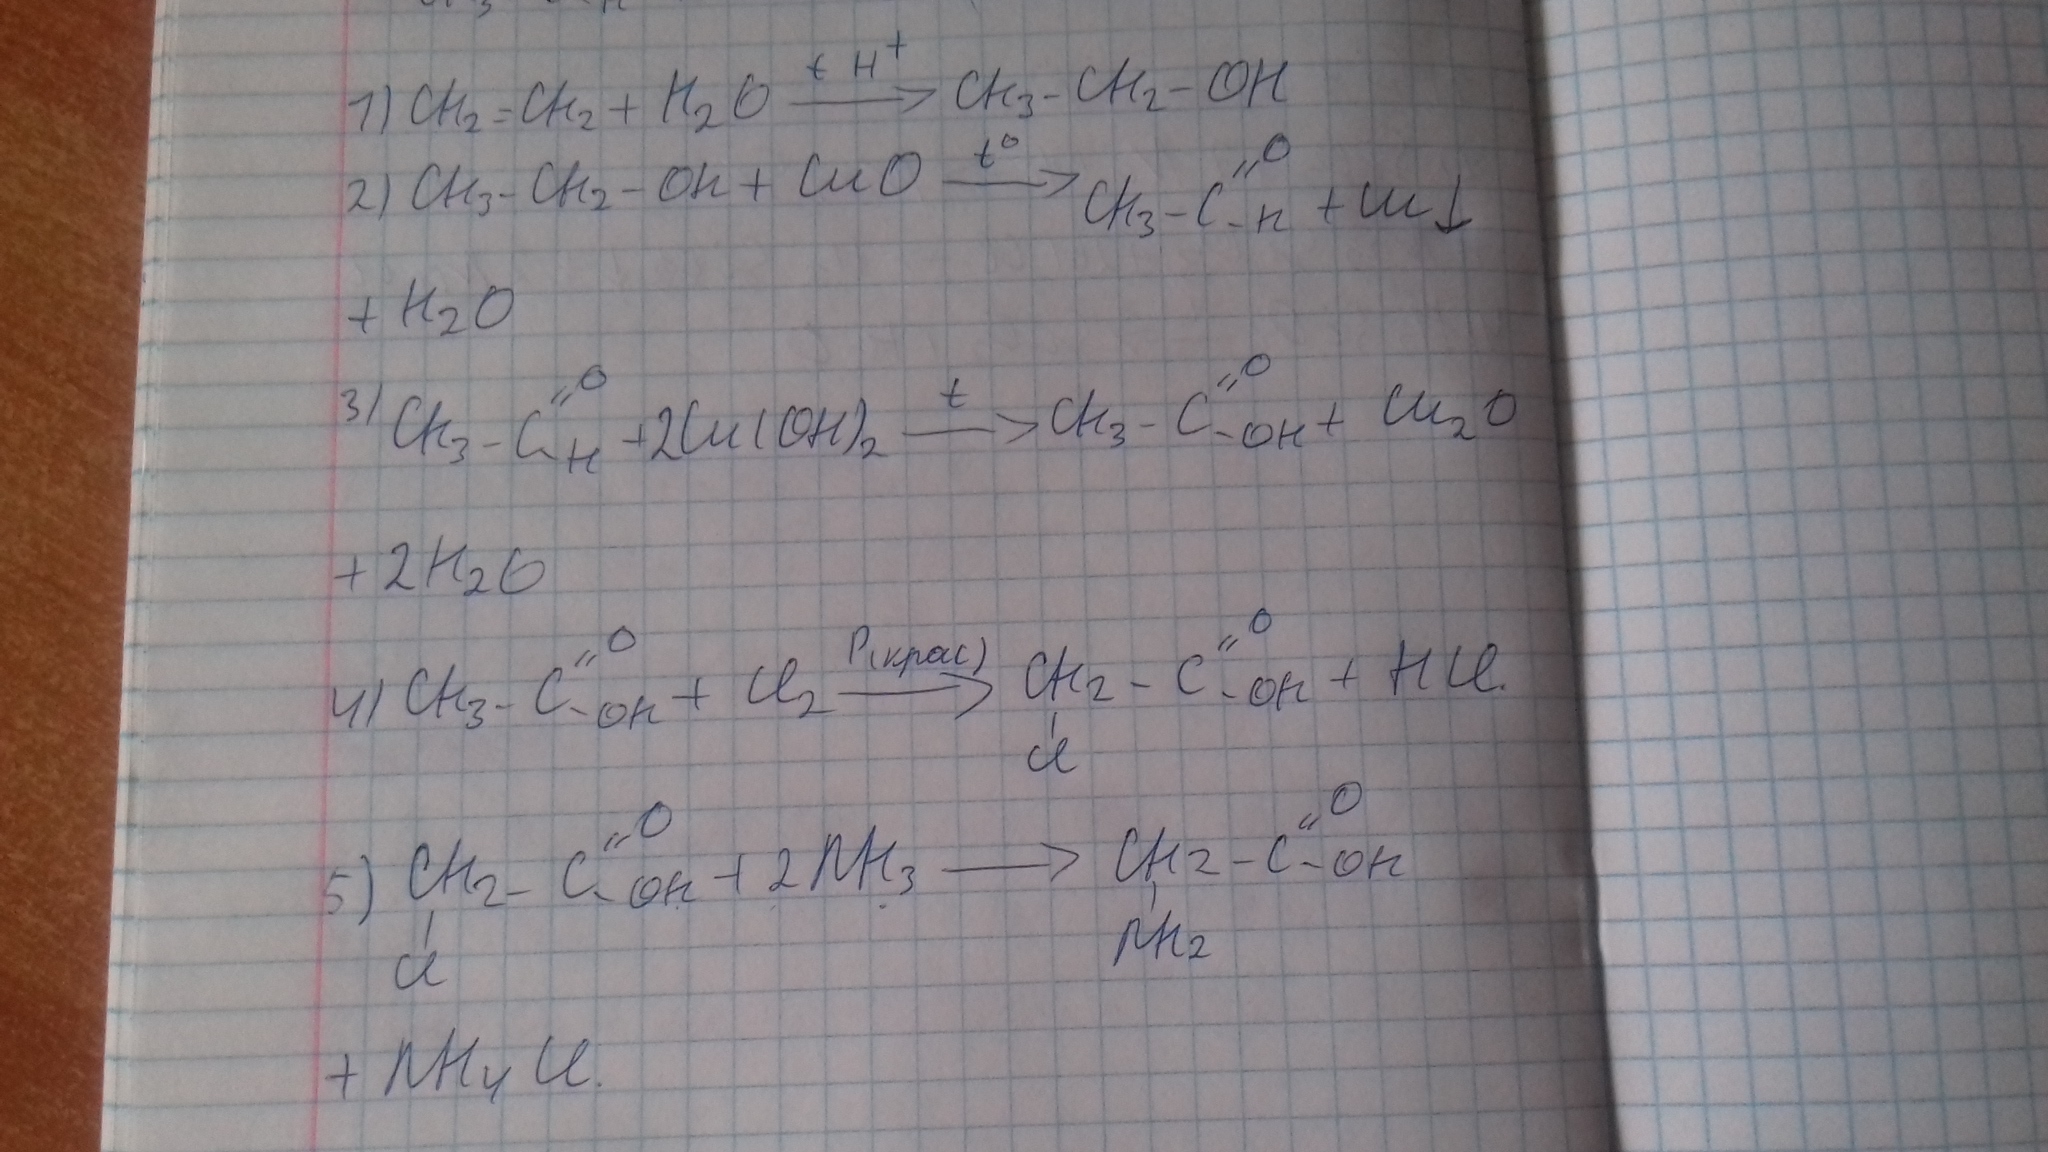 1) CH2=CH2 + H2O t H+ → CH3-CH2-OH
2) CH3-CH2-OH + CuO t° → CH3-C=O-H + Cu↓
+ H2O
3) CH3-C=O-H +2Cu(OH)2 t → CH3-C=O-OH + Cu2O
+ 2H2O
4) CH3-C=O-OH + Cl2 P(крас) → CH2-C=O-OH + HCl.
Cl
5) CH2-C=O-OH + 2NH3 → CH2-C=O-OH
Cl NH2
+ NH4Cl.